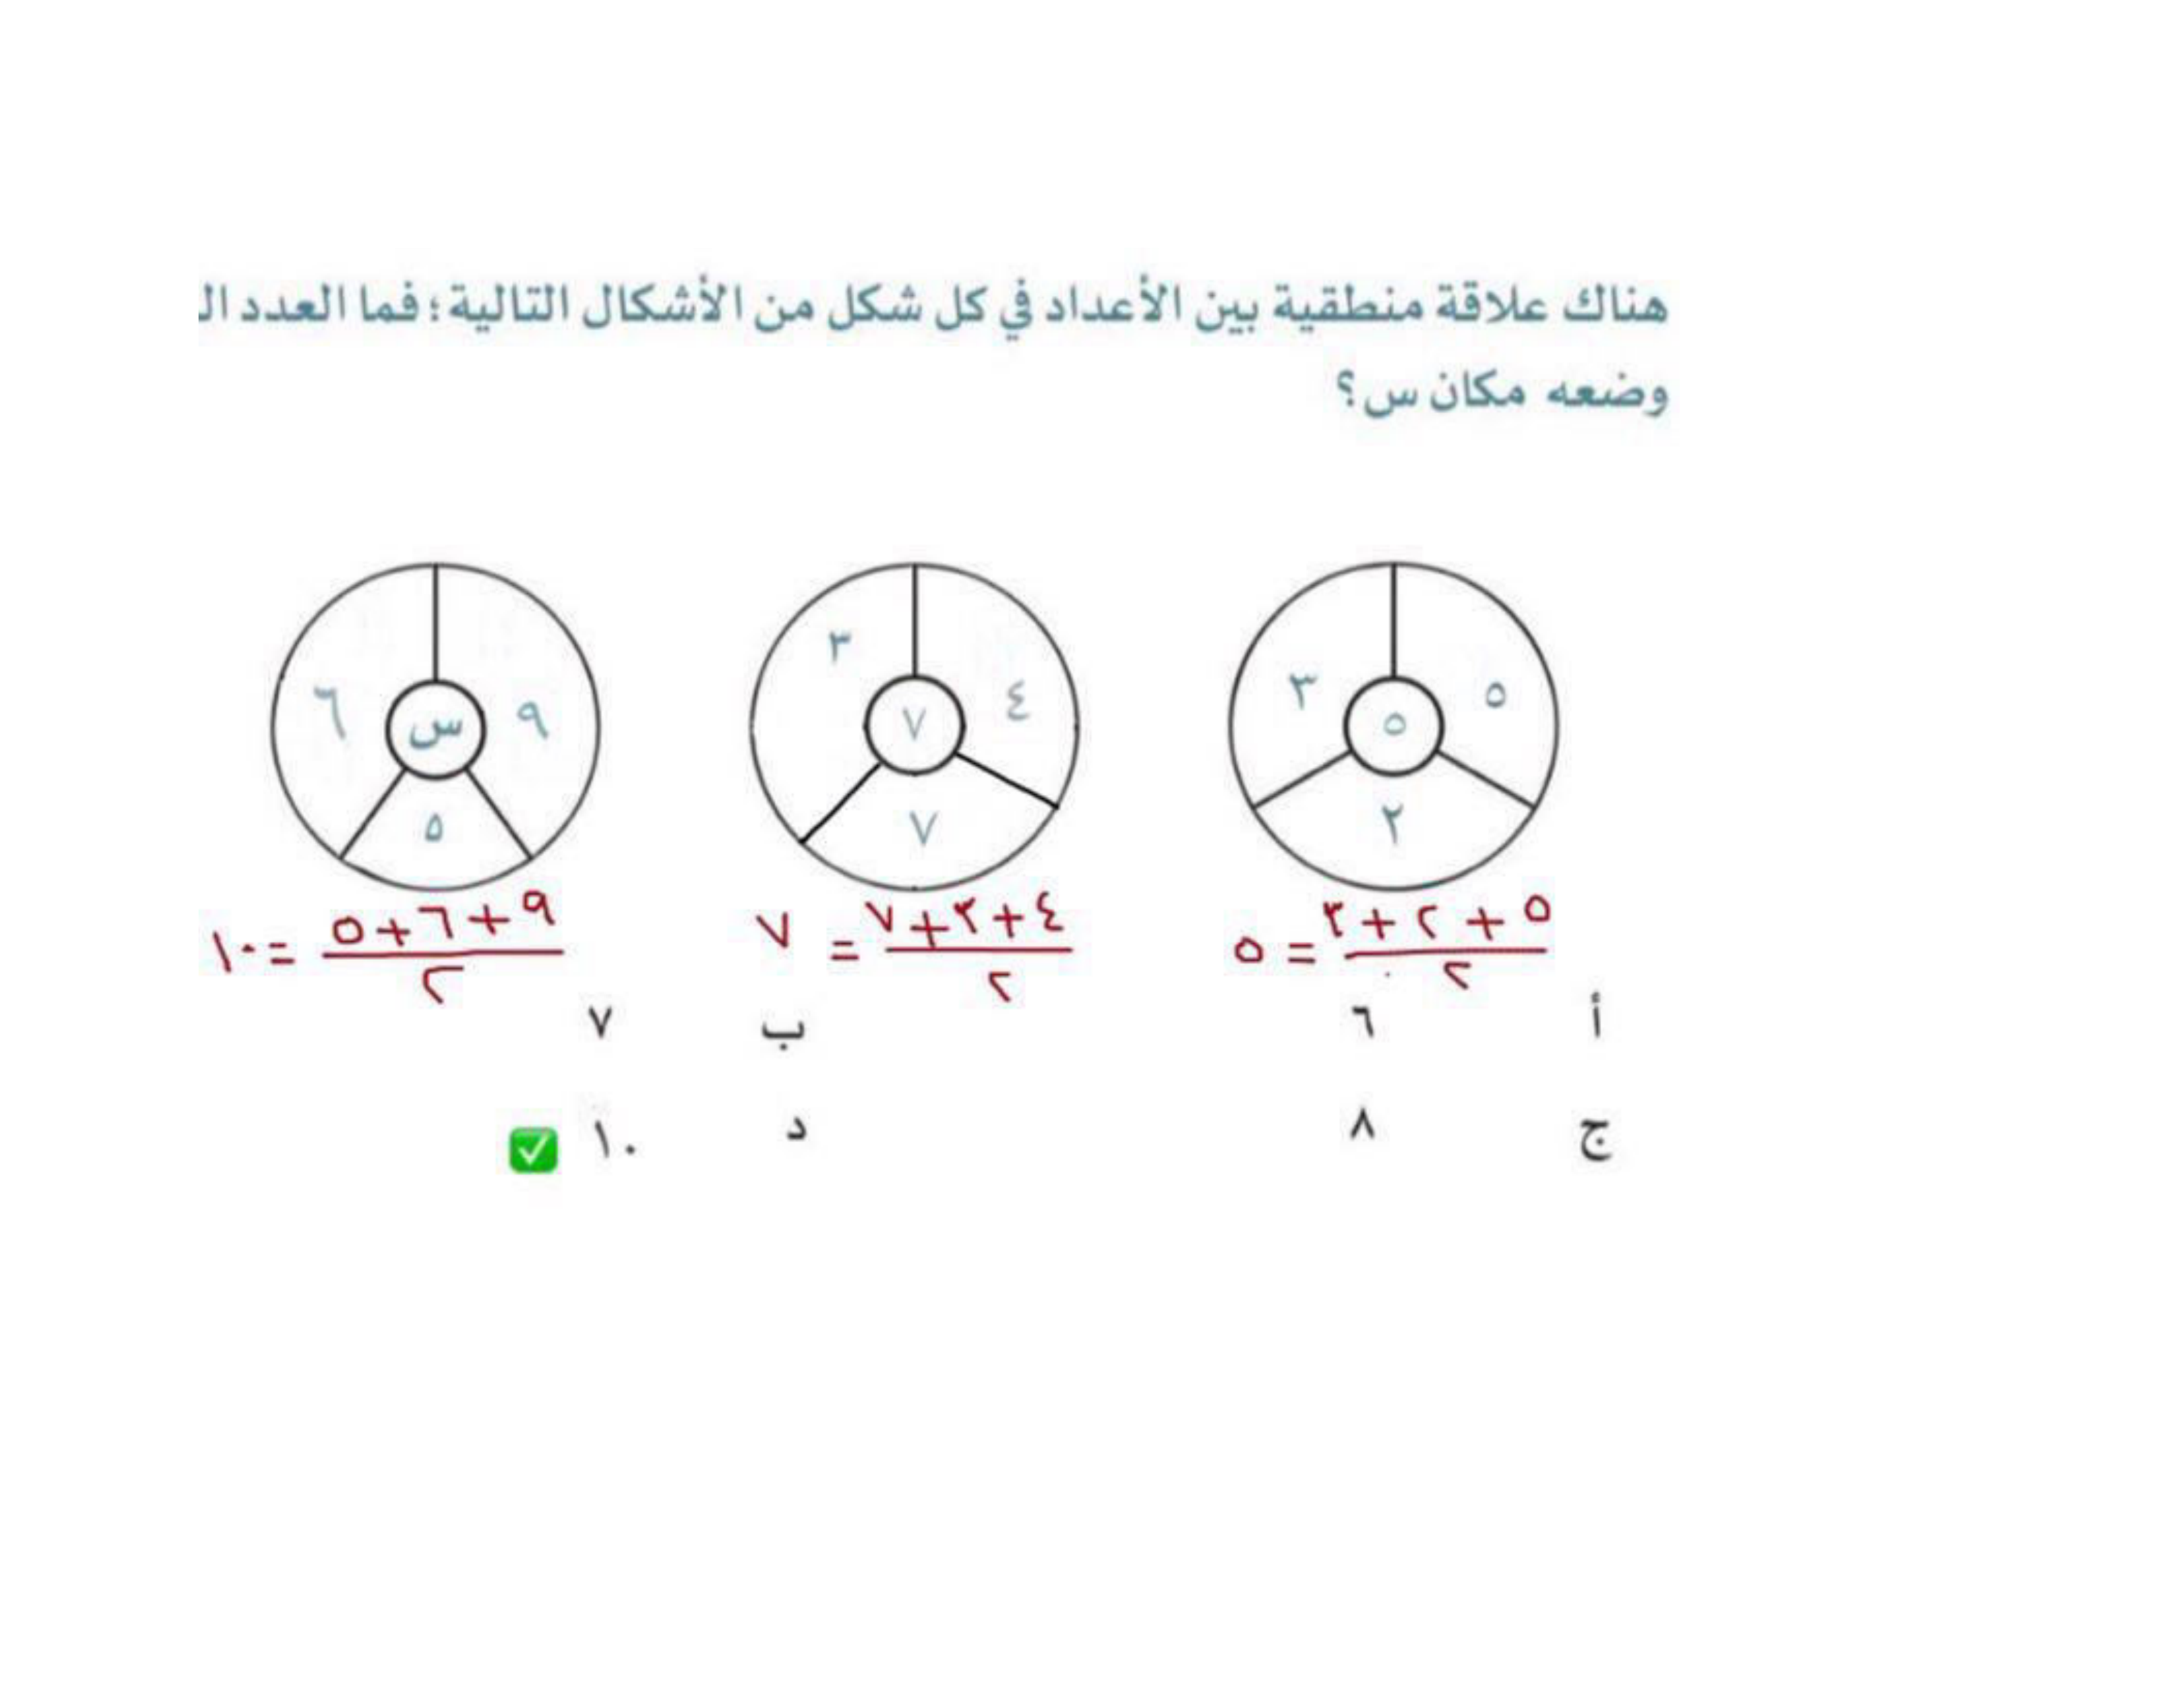 هناك علاقة منطقية بين الأعداد في كل شكل من الأشكال التالية؛ فما العدد الـ
وضعه مكان س؟
٥ ٣ ٥ ٢
٤ ٣ ٧ ٧
٩ ٦ س ٥
٥ + ٢ + ٣ / ٢ = ٥
٤ + ٣ + ٧ / ٢ = ٧
٩ + ٦ + ٥ / ٢ = ١٠
أ ٦ ب ٧
ج ٨ د ١٠